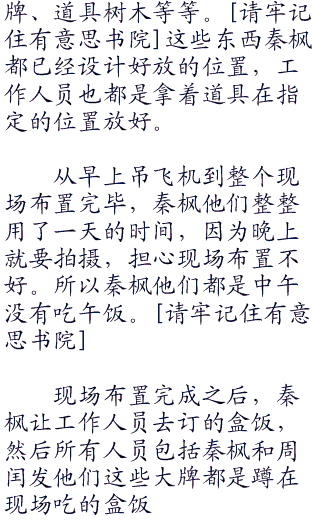 牌、道具树木等等。[请牢记
住有意思书院]这些东西秦枫
都已经设计好放的位置，工
作人员也都是拿着道具在指
定的位置放好。
从早上吊飞机到整个现
场布置完毕，秦枫他们整整
用了一天的时间，因为晚上
就要拍摄，担心现场布置不
好。所以秦枫他们都是中午
没有吃午饭。[请牢记住有意
思书院]
现场布置完成之后，秦
枫让工作人员去订的盒饭，
然后所有人员包括秦枫和周
闰发他们这些大牌都是蹲在
现场吃的盒饭